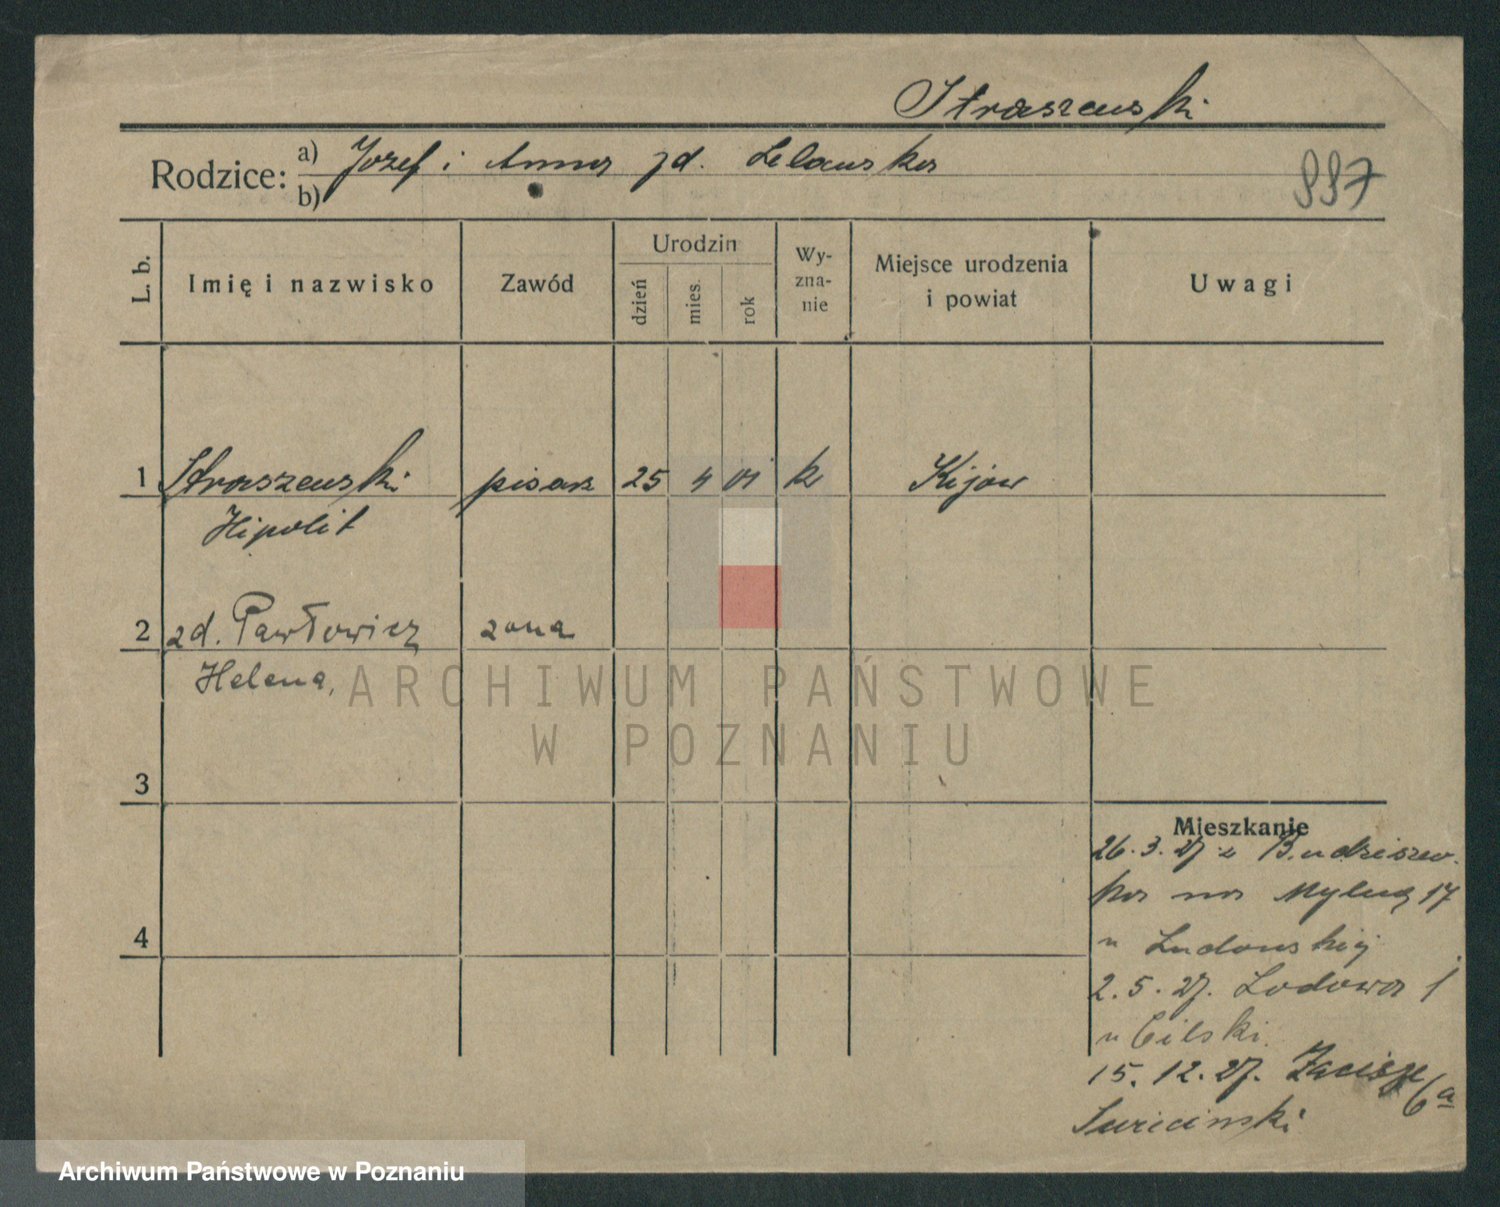 Straszewski
Rodzice: a) Józef i Anna zd. Lelauska
b)
997
L. b.
Imię i nazwisko
Zawód
Urodzin
dzień
mies.
rok
Wy-
zna-
nie
Miejsce urodzenia
i powiat
Uwagi
1 Straszewski pisarz 25 4 01 k Kijów
Hipolit
2 zd. Pawłowicz żona
Helena,
ARCHIWUM PAŃSTWOWE
W POZNANIU
3
Mieszkanie
26.3.27 z Budziszew-
ka na Mylną 17
4
u Ludowskiej
2.5.27. Lodowa 1
u Cilski.
15.12.27. Zacisze 6a
Archiwum Państwowe w Poznaniu